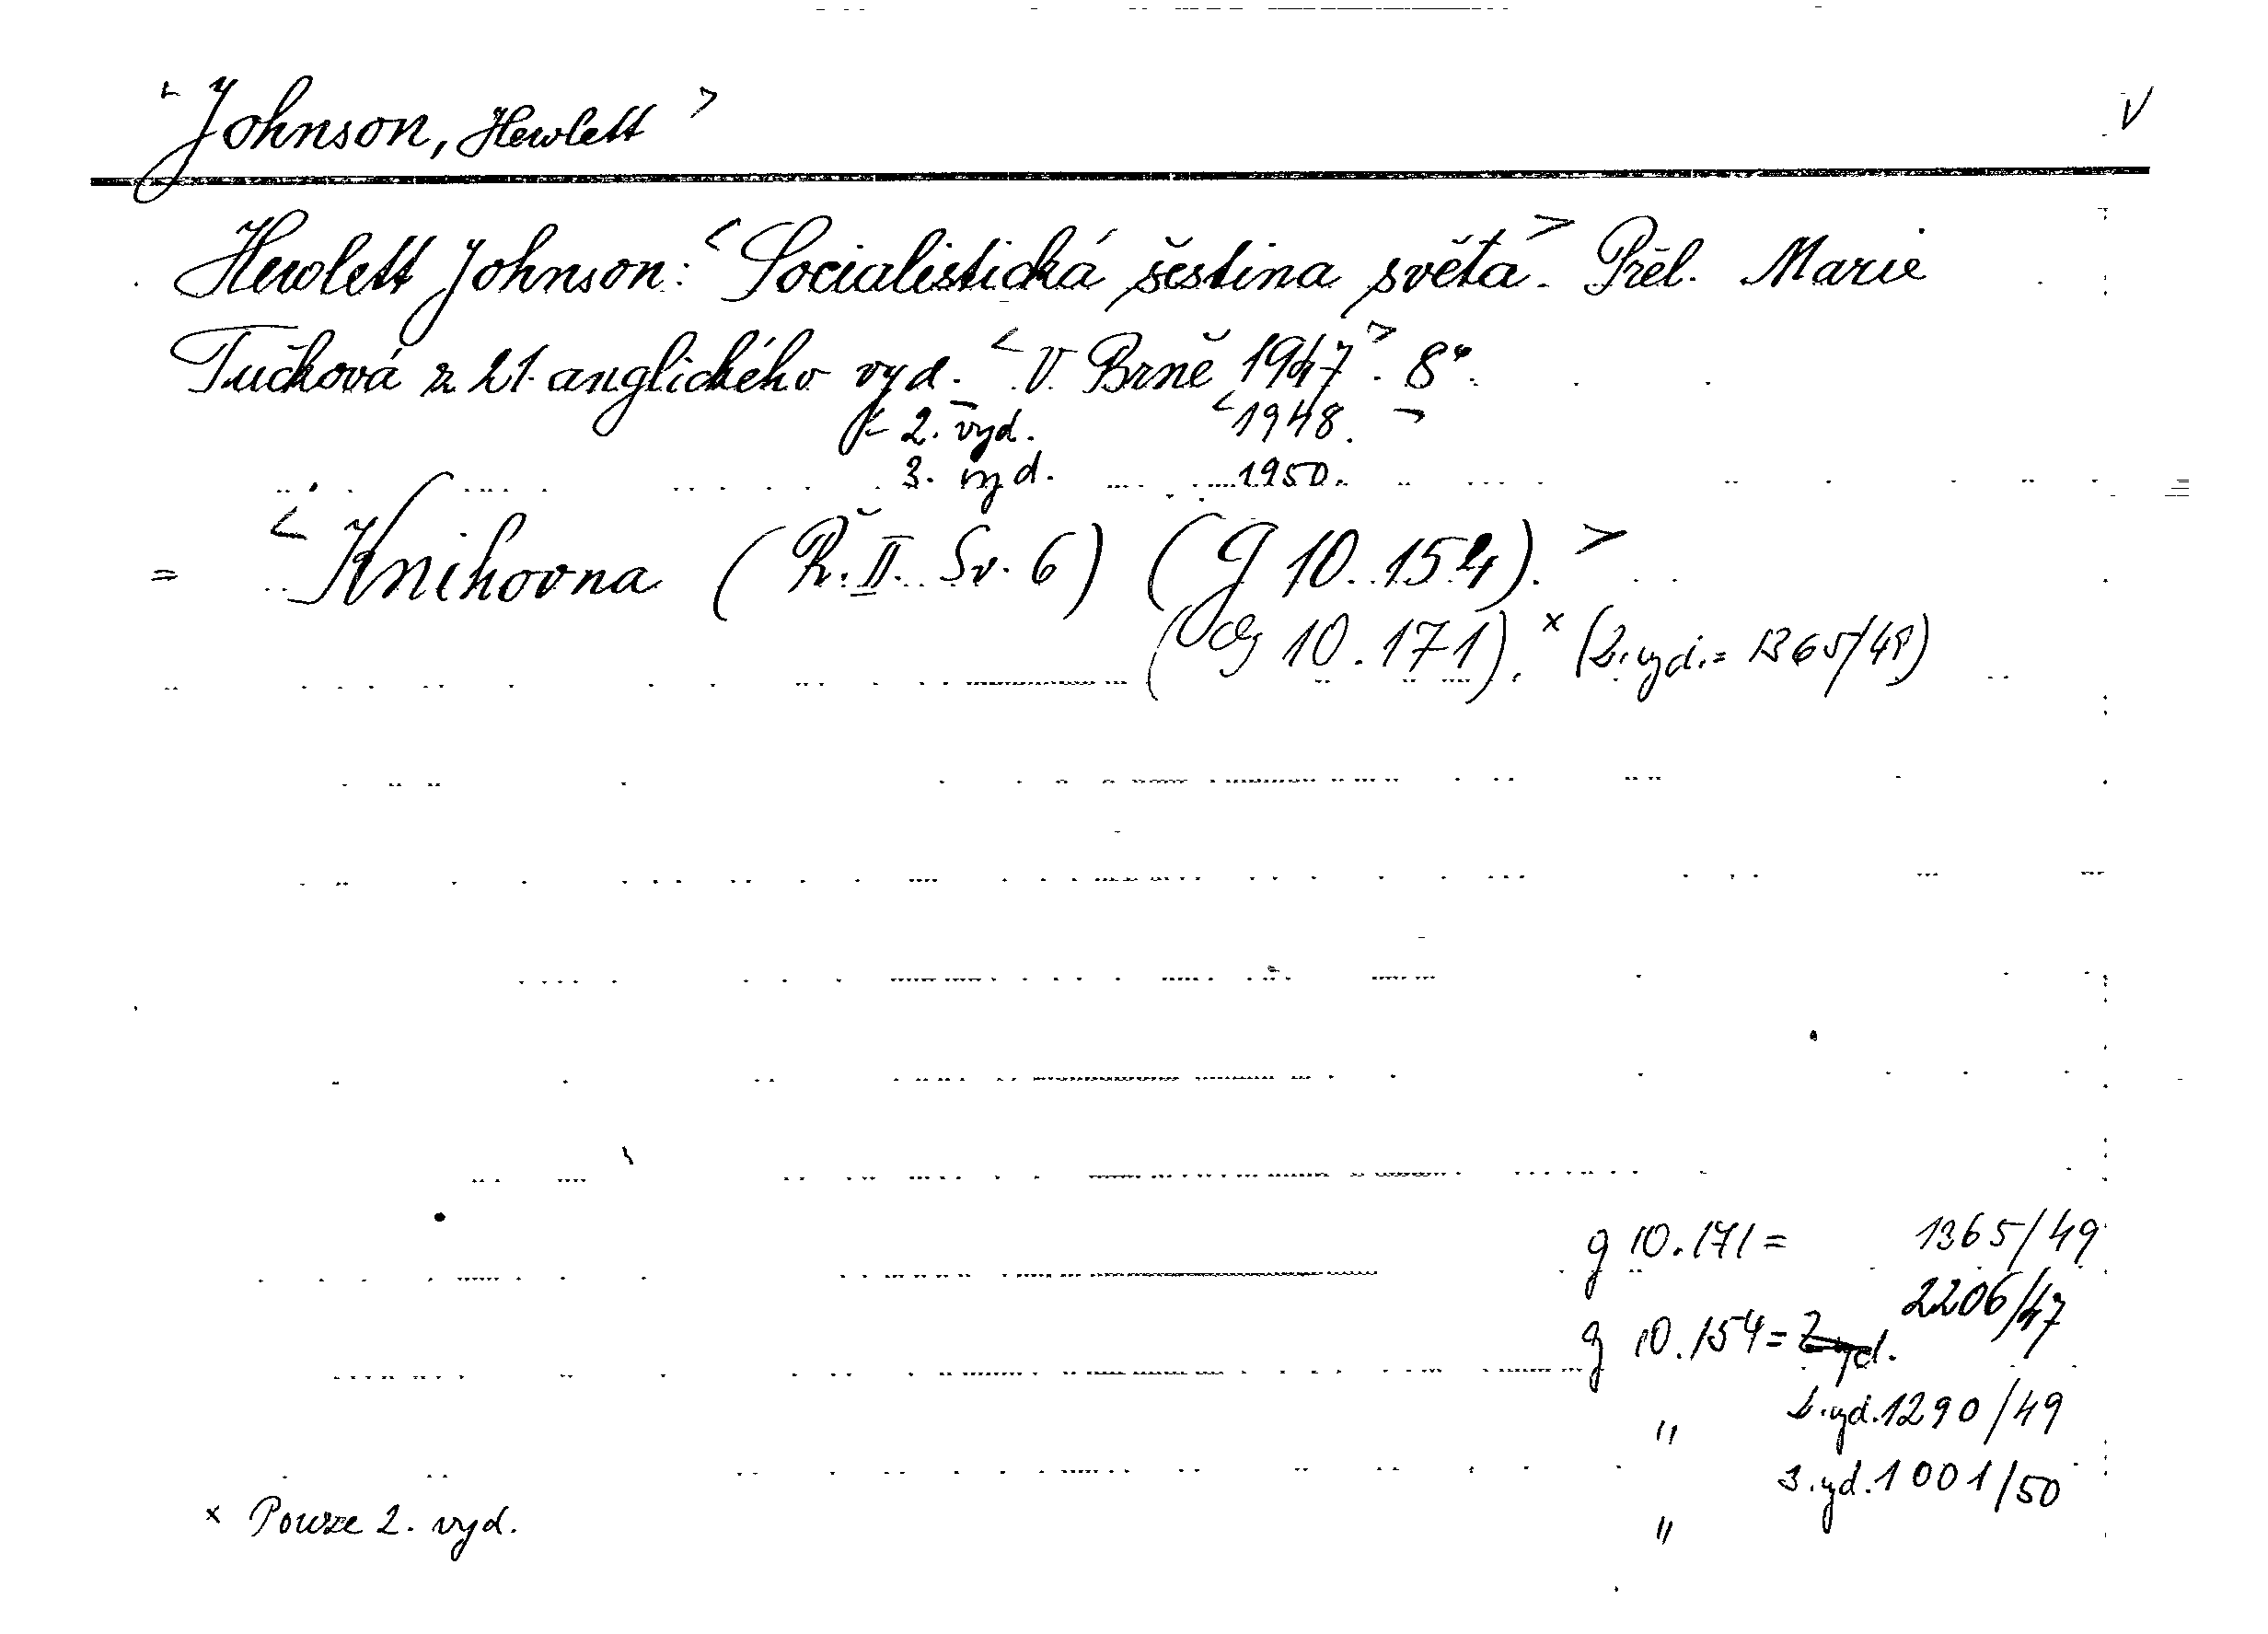 <Johnson, Hewlett> V
Hewlett Johnson: <Socialistická šestina světa>. Přel. Marie
Tučková z 21. anglického vyd. <V Brně 1947>. 8°.
< 2. vyd. <1948. >
3. vyd. 1950.
= <Knihovna (Ř. II. Sv. 6) (g 10.154).>
(g 10.171). x (2. vyd. = 1365/49)
g 10.171 = 1365/49
2206/47
g 10.154 = 2 vyd.
" 2. vyd. 1290/49
3. vyd. 1001/50
x Pouze 2. vyd. "